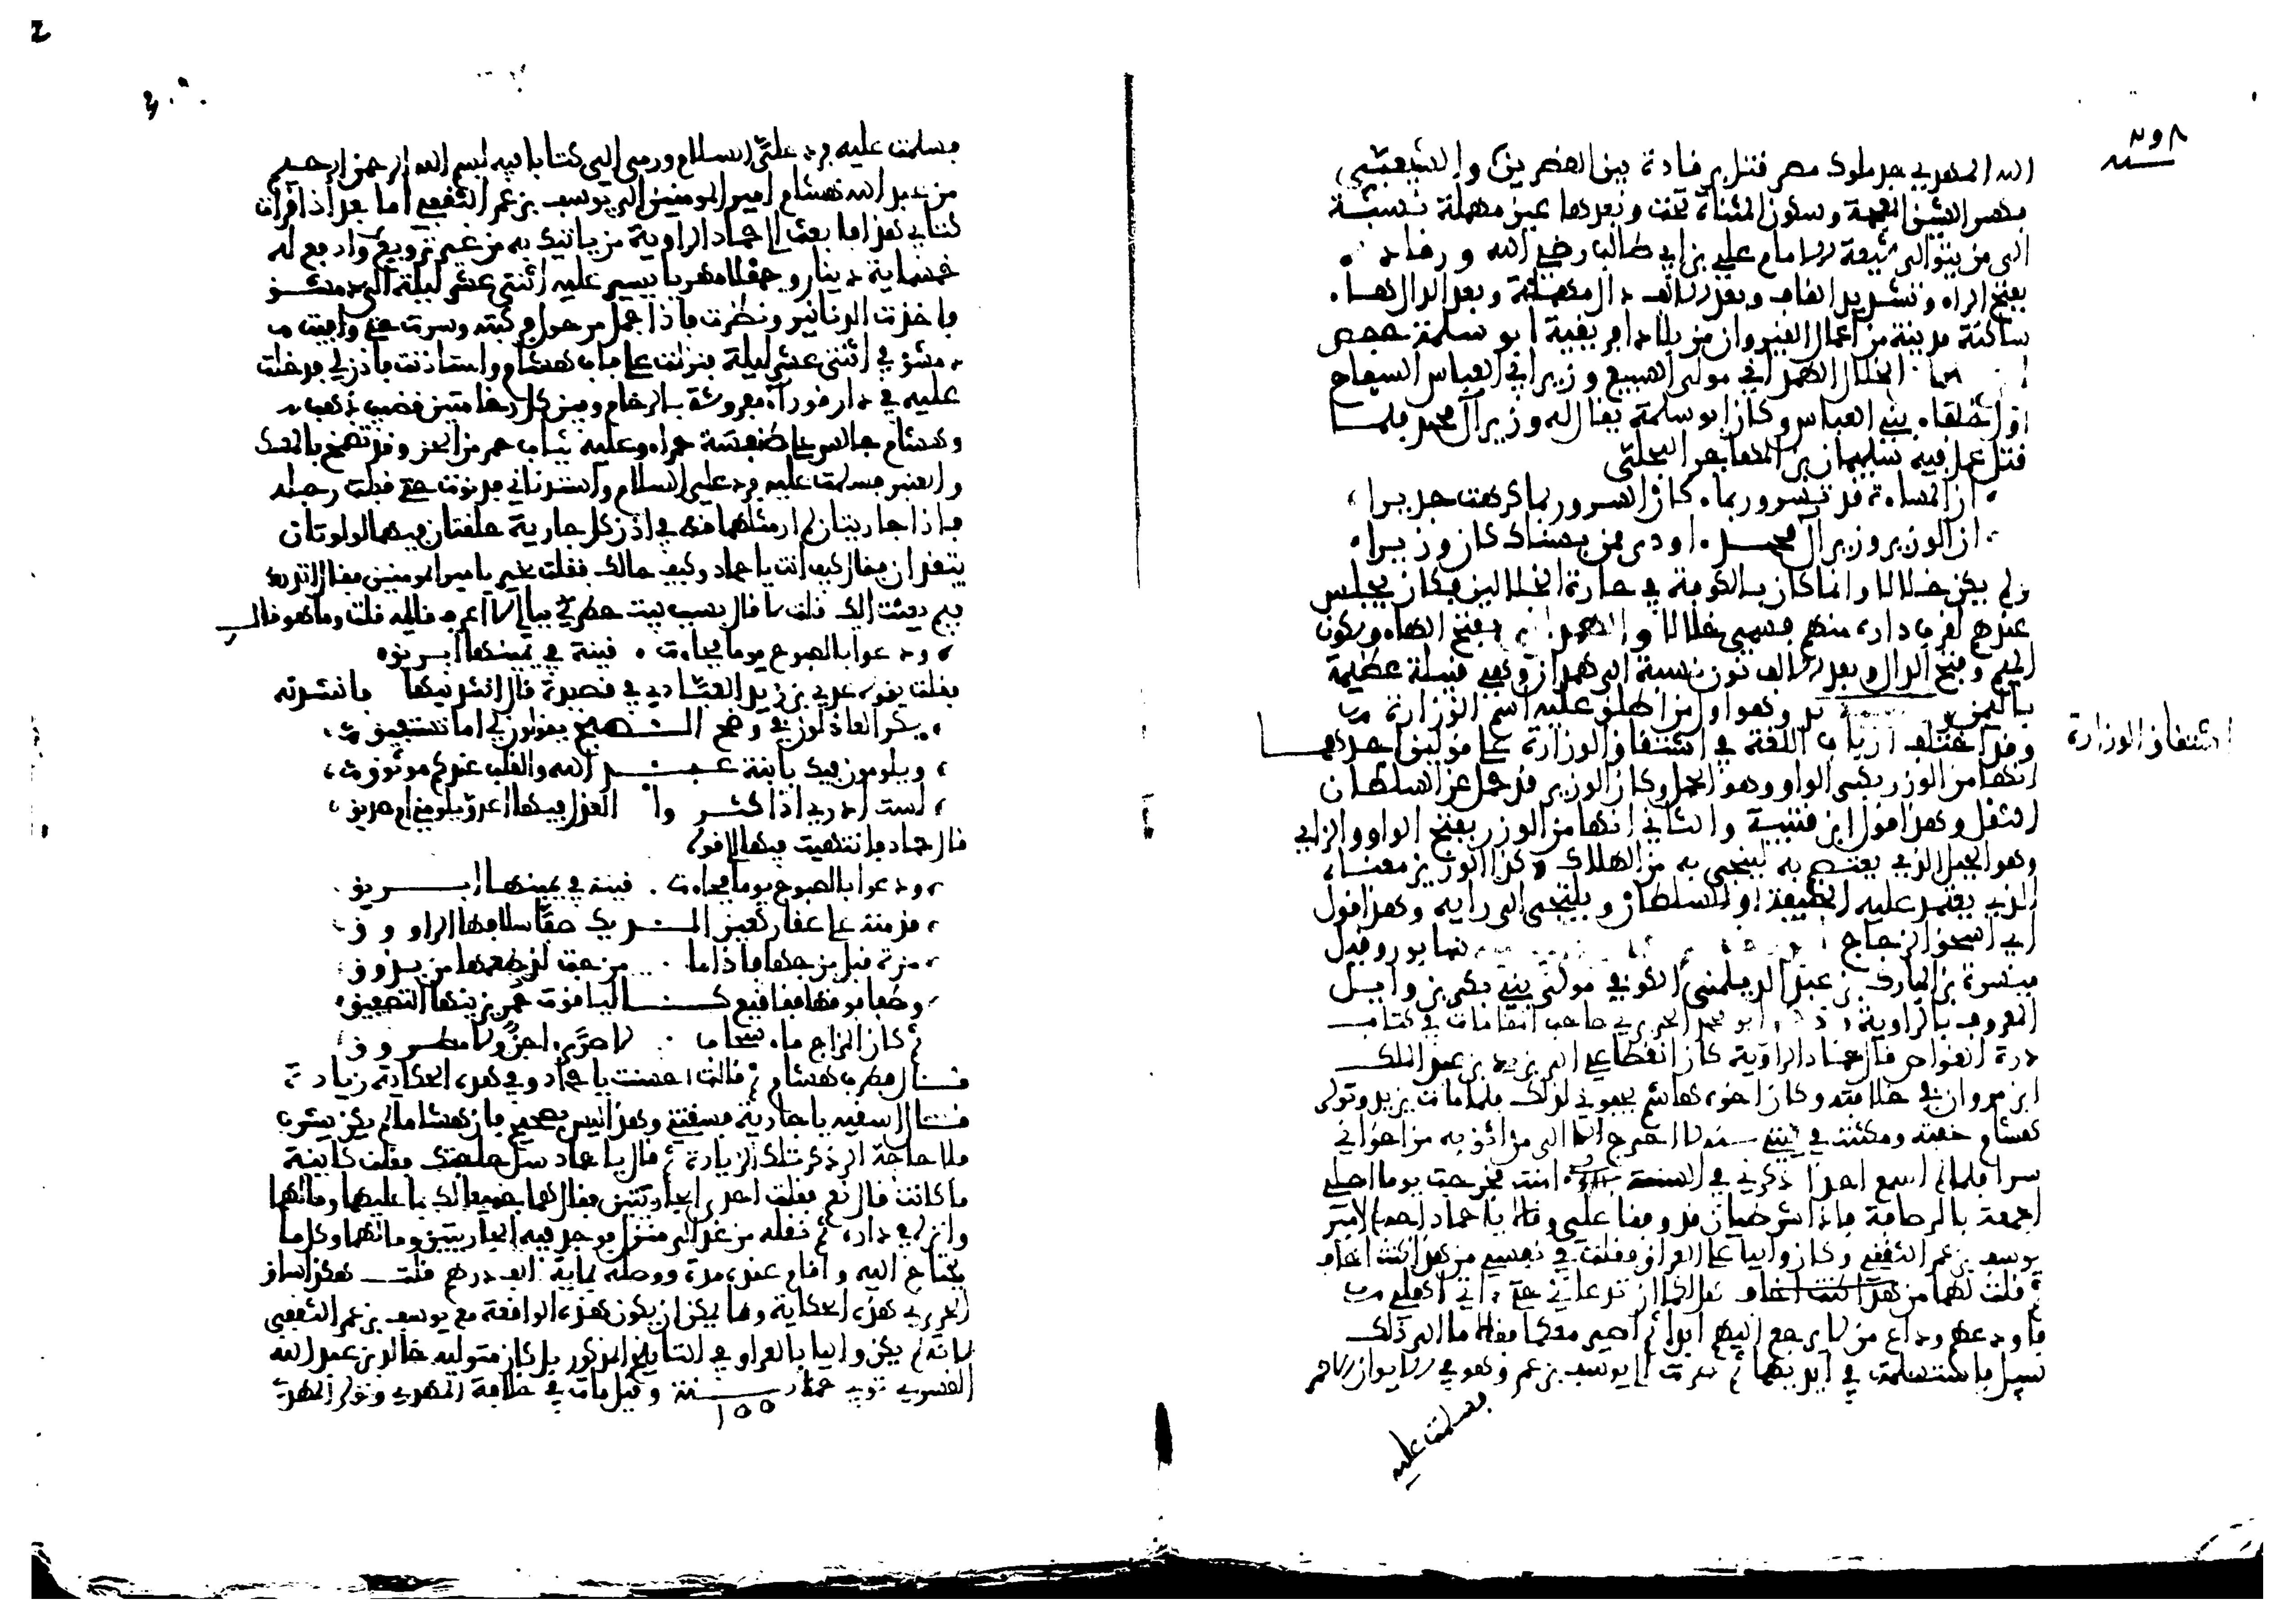 ٢٩٨
الله المهدي جد ملوك مصر قتل برقادة بين القصرين والشيعي
بكسر الشين المعجمة وسكون المثناة تحت وبعدها عين مهملة نسبة
الى من يتوالى شيعة الامام علي بن ابي طالب رضي الله ورقادة
بفتح الراء وتشديد القاف وبعد الالف دال مهملة وبعد الدال هاء
ساكنة مدينة من اعمال القيروان من بلاد افريقية ابو سلمة حفص
الخلال الهمداني مولى السبيع وزير ابي العباس السفاح
اول خلفاء بني العباس وكان ابو سلمة يقال له وزير آل محمد فلما
قتل عمل فيه سليمان بن المهاجر البجلي
ان المساءة قد تسر وربما كان السرور بما كرهت جديرا
ان الوزير وزير آل محمد اودى فمن يشناك كان وزيرا
ولم يكن خلالا وانما كان بالكوفة في حارة الخلالين وكان يجلس
عندهم لقرب داره منهم فسمي خلالا والهمداني بفتح الهاء وسكون
الميم وفتح الدال وبعد الالف نون نسبة الى همدان وهي قبيلة عظيمة
باليمن وهو اول من اطلق عليه اسم الوزارة
اشتقاق الوزارة
وقد اختلف ارباب اللغة في اشتقاق الوزارة على قولين احدهما
انها من الوزر بكسر الواو وهو الحمل وكان الوزير قد حمل عن السلطان
الثقل وهذا قول ابن قتيبة والثاني انها من الوزر بفتح الواو والزاي
وهو الجبل الذي يعتصم به لينجى به من الهلاك وكذا الوزير معناه
الذي يعتمد عليه الخليفة او السلطان ويلتجي الى رايه وهذا قول
ابي اسحق الزجاج سابور وقيل
ميسرة بن المبارك بن عبيد الديلمي الكوفي مولى بني بكر بن وايل
المعروف بالراوية ابو محمد الحريري صاحب المقامات في كتاب
درة الغواص قال حماد الراوية كان انقطاعي الى يزيد بن عبد الملك
ابن مروان في خلافته وكان اخوه هشام يجفوني لذلك فلما مات يزيد وتولى
هشام خفته ومكثت في بيتي سنة لا اخرج الا الى من اثق به من اخواني
سرا فلما لم اسمع احدا ذكرني في السنة امنت فخرجت يوما اصلي
الجمعة بالرصافة فاذا شرطيان قد وقفا علي وقالا يا حماد اجب الامير
يوسف بن عمر الثقفي وكان واليا على العراق فقلت في نفسي من هذا كنت اخاف
ثم قلت لهما هل لكما ان تدعاني حتى اتي اهلي
فاودعهم وداع من لا يرجع اليهم ابدا ثم اصير معكما فقالا ما الى ذلك
سبيل فاستسلمت في ايديهما ثم صرت الى يوسف بن عمر وهو في الايوان الاحمر
فسلمت عليه
فسلمت عليه فرد علي السلام ورمى الي كتابا فيه بسم الله الرحمن الرحيم
من عبد الله هشام امير المومنين الى يوسف بن عمر الثقفي اما بعد اذا قرات
كتابي هذا فابعث الى حماد الراوية من ياتيك به من غير ترويع وادفع له
خمسماية دينار وجملا مهريا يسير عليه اثنتى عشر ليلة الى دمشق
فاخذت الدنانير ونظرت فاذا جمل مرحول فركبته وسرت حتى وافيت
دمشق في اثنتى عشر ليلة فنزلت على باب هشام واستاذنت فاذن لي فدخلت
عليه في دار قوراء مفروشة بالرخام وبين كل رخامتين قضيب ذهب
وهشام جالس على طنفسة حمراء وعليه ثياب حمر من الخز وقد تضمخ بالمسك
والعنبر فسلمت عليه فرد علي السلام واستدناني فدنوت حتى قبلت رجله
فاذا جاريتان لم ار مثلهما قط في اذن كل جارية حلقتان فيهما لولوتان
يتقدان فقال كيف انت يا حماد وكيف حالك فقلت بخير يا امير المومنين فقال اتدري
فيم بعثت اليك قلت لا قال بسبب بيت خطر في بالي لا اعرف قايله قلت وما هو قال
ودعوا بالصبوح يوما فجاءت قينة في يمينها ابريق
فقلت يقوله عدي بن زيد العبادي في قصيدة قال انشدنيها فانشدته
بكر العاذلون في وضح الصبح يقولون لي اما تستفيق
ويلومون فيك يا ابنة عبد الله والقلب عندكم موثوق
لست ادري اذا كثروا العذل فيها اعدو يلومني ام صديق
قال حماد فانتهيت فيها الى قوله
ودعوا بالصبوح يوما فجاءت قينة في يمينها ابريق
قدمته على عقار كعين الديك صفى سلافها الراووق
مزة قبل مزجها فاذا ما مزجت لذ طعمها من يذوق
وطفا فوقها فقاقيع كالياقوت حمر يزينها التصفيق
ثم كان المزاج ماء سحاب لا صرى اجن ولا مطروق
قال فطرب هشام ثم قال احسنت يا حماد وفي هذه الحكاية زيادة
قال اسقيه يا جارية فسقتني وهذا ليس بصحيح فان هشاما لم يكن يشرب
فلا حاجة الى ذكر تلك الزيادة ثم قال يا حماد سل حاجتك فقلت كاينة
ما كانت قال نعم فقلت احدى الجاريتين فقال هما جميعا لك بما عليهما ومالهما
وانزله في داره ثم نقله من غد الى منزل فوجد فيه الجاريتين وما لهما وكل ما
يحتاج اليه واقام عنده مدة ووصله بماية الف درهم قلت هكذا ساق
الحريري هذه الحكاية وما يمكن ان يكون هذه الواقعة مع يوسف بن عمر الثقفي
لانه لم يكن واليا بالعراق في التاريخ المذكور بل كان متوليه خالد بن عبد الله
القسري توفي حماد سنة ١٥٥ وقيل مات في خلافة المهدي وتولى المهدي